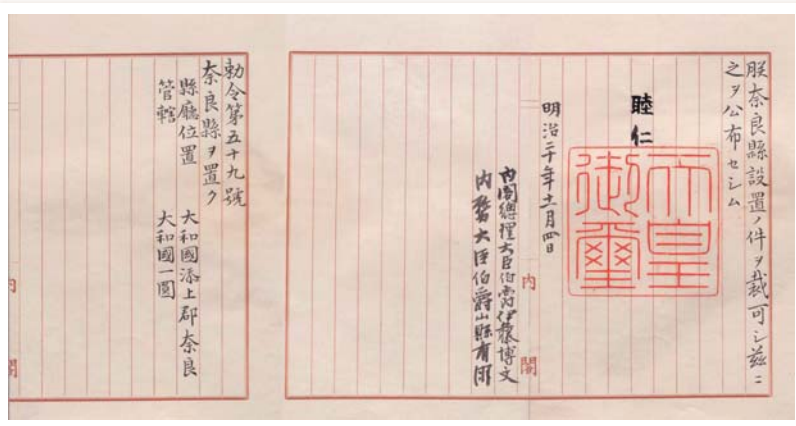 朕奈良縣設置ノ件ヲ裁可シ茲ニ
之ヲ公布セシム
睦仁
天皇
御璽
明治二十年十一月四日
内閣總理大臣伯爵伊藤博文
内務大臣伯爵山縣有朋
内閣
勅令第五十九號
奈良縣ヲ置ク
縣廳位置 大和國添上郡奈良
管轄 大和國一圓
内閣